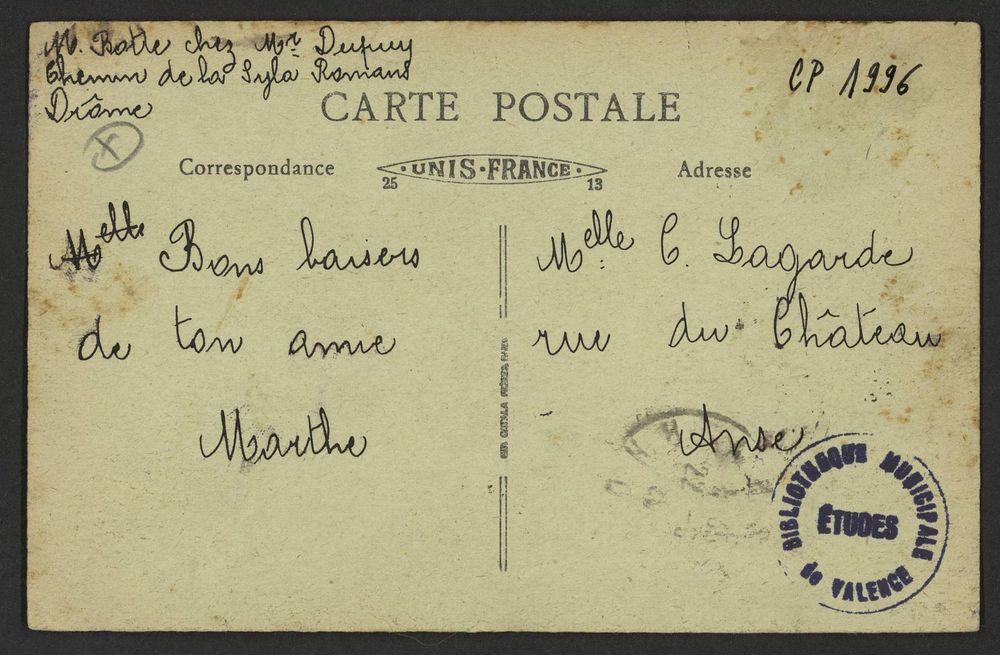 M. Botte chez Mr Dupuy
Chemin de la Syla Romans
Drôme
CP 1996
CARTE POSTALE
X
Correspondance
UNIS·FRANCE
25 13
Adresse
Melle Bons baisers
de ton amie
Marthe
Melle C. Lagarde
rue du Château
Anse
BIBLIOTHEQUE MUNICIPALE
ÉTUDES
de VALENCE